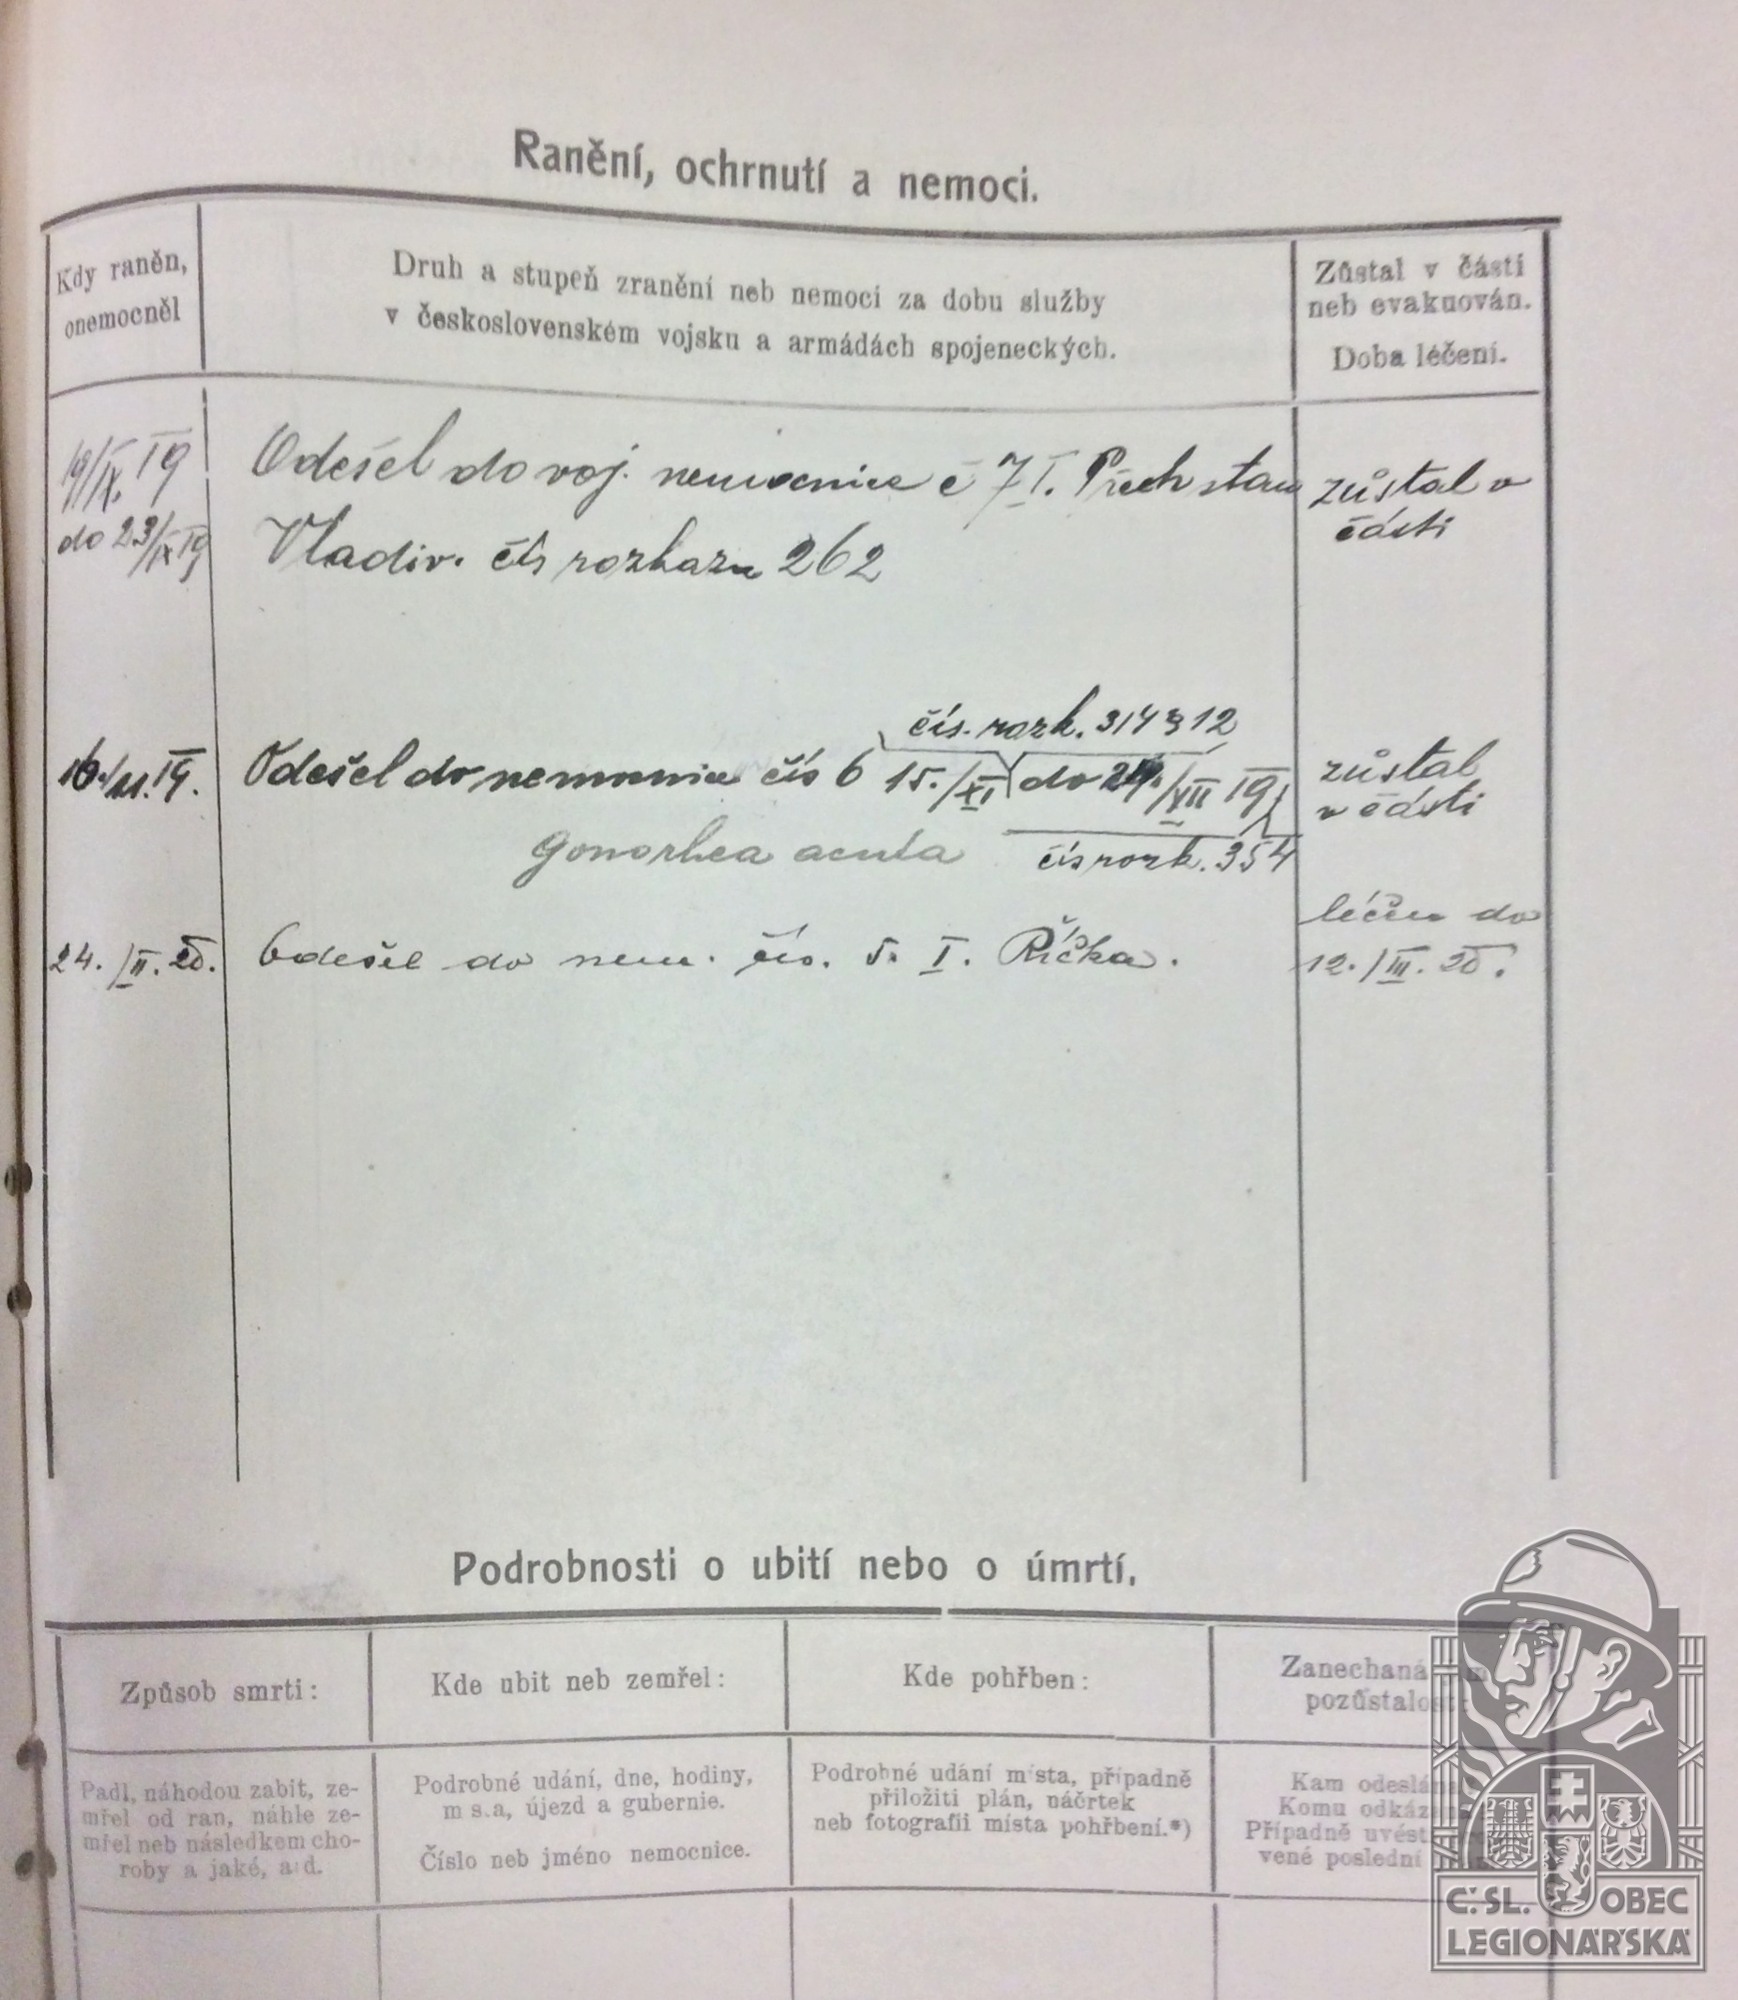 Ranění, ochrnutí a nemoci.
Kdy raněn,
onemocněl
Druh a stupeň zranění neb nemoci za dobu služby
v československém vojsku a armádách spojeneckých.
Zůstal v části
neb evakuován.
Doba léčení.
19/IX. 19
do 23/IX 19
Odešel do voj. nemocnice č 7 I. Přech stan
Vladiv. čís rozkazu 262
zůstal v
části
čís. rozk. 314 § 12
16./11. 19.
Odešel do nemocnice čís 6 15./XI do 24./XII 19
zůstal
v části
gonorhea acuta
čís rozk. 354
24. /II. 20.
Odešel do nem. čís. 5. I. Říčka.
léčen do
12. /III. 20.
Podrobnosti o ubití nebo o úmrtí.
Způsob smrti:
Kde ubit neb zemřel:
Kde pohřben:
Zanechaná
pozůstalost
Padl, náhodou zabit, ze-
mřel od ran, náhle ze-
mřel neb následkem cho-
roby a jaké, a d.
Podrobné udání, dne, hodiny,
m s.a, újezd a gubernie.
Číslo neb jméno nemocnice.
Podrobné udání místa, případně
přiložiti plán, náčrtek
neb fotografii místa pohřbení.*)
Kam odeslána
Komu odkáz
Případně uvést
vené poslední
Č. SL. OBEC
LEGIONÁŘSKÁ